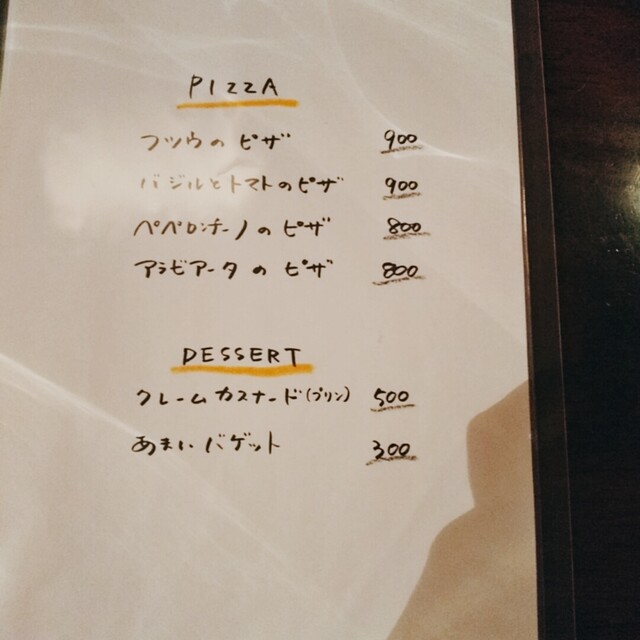 PIZZA
フツウのピザ 900
バジルとトマトのピザ 900
ペペロンチーノのピザ 800
アラビアータのピザ 800
DESSERT
クレームカスタード(プリン) 500
あまいバゲット 300